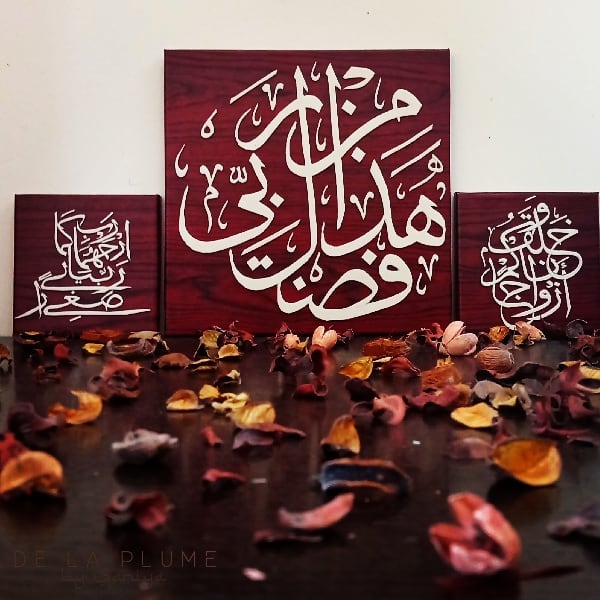 رب ارحمهما كما ربياني صغيرا
هذا من فضل ربّي
وخلقناكم أزواجا
DE LA PLUME